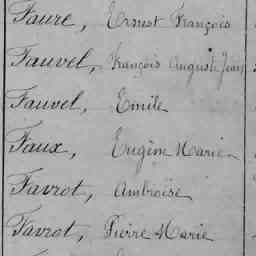 Faure, Ernest François
Fauvel, François August Jean
Fauvel, Emile
Faux, Eugène Marie
Favrot, Ambroise
Favrot, Pierre Marie